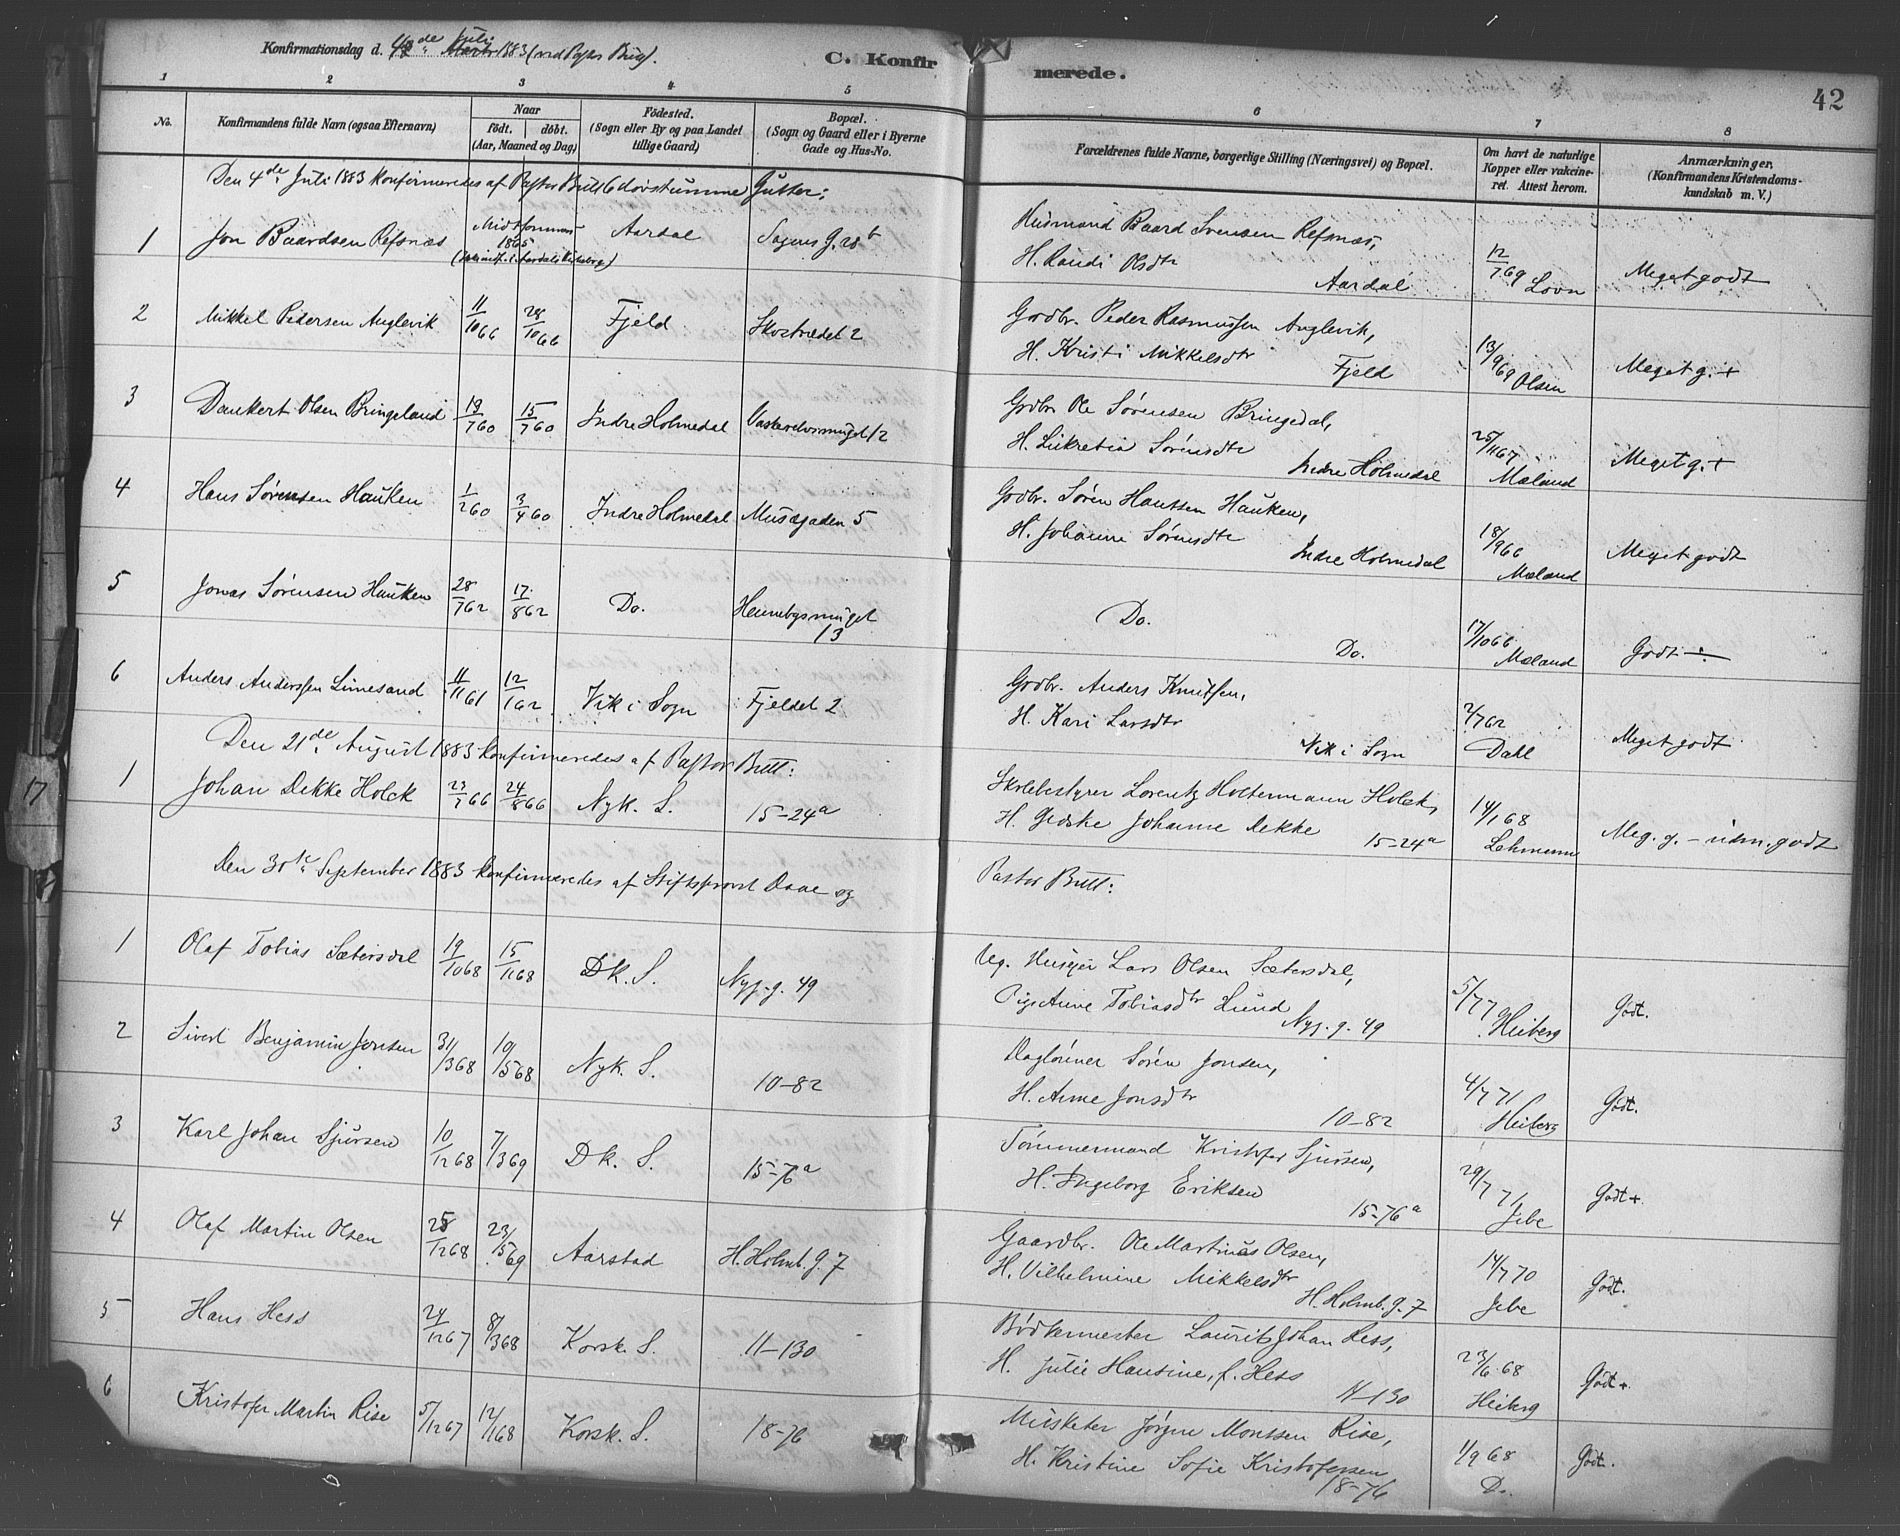 Konfirmationsdag d. 4de Juli 1883 (ved Pastor Bull).
C. Konfirmerede.
42
1 2 3 4 5 6 7 8
No.
Konfirmandens fulde Navn (ogsaa Efternavn)
Naar
födt. döbt.
(Aar, Maaned og Dag)
Födested.
(Sogn eller By og paa Landet tillige Gaard)
Bopæl.
(Sogn og Gaard eller i Byerne Gade og Hus-No.
Forældrenes fulde Navne, borgerlige Stilling (Næringsvei) og Bopæl.
Om havt de naturlige Kopper eller vakcineret. Attest herom.
Anmærkninger.
(Konfirmandens Kristendomskundskab m. V.)
Den 4de Juli 1883 konfirmeredes af Pastor Bull 6 døvstumme Gutter:
1 Jon Baardsen Refsnæs Midtsommer 1865 Aardal Husmand Baard Svensen Refsnæs,
H. Randi Olsdtr Aardal 12/7 69 Lovn Meget godt
2 Mikkel Pedersen Anglevik 11/10 66 28/10 66 Fjeld Skostrædet 2 Grdbr. Peder Rasmussen Anglevik,
H. Kristi Mikkelsdtr Fjeld 13/9 69 Olsen Meget g. +
3 Dankert Olsen Bringeland 19/7 60 15/7 60 Indre Holmedal Vaskerelvsmuget 12 Grdbr Ole Sørensen Bringedal,
H. Lukretia Sørensdtr Indre Holmedal 25/11 67 Mæland Meget g. +
4 Hans Sørensen Hauken 1/2 60 3/4 60 Indre Holmedal Muségaden 5 Grdbr. Søren Hanssen Hauken,
H. Johanne Sørensdtr Indre Holmedal 18/9 66 Mæland Meget godt
5 Jonas Sørensen Hauken 28/7 62 17/8 62 Do. Hennebysmuget 13 Do.
Do. 17/10 66 Mæland Godt ÷
6 Anders Anderssen Limesand 11/11 61 12/1 62 Vik i Sogn Fjeldet 2 Grdbr. Anders Knutsen,
H. Kari Larsdtr Vik i Sogn 2/7 62 Dahl Meget godt
Den 21de August 1883 konfirmeredes af Pastor Bull:
1 Johan Dekke Holck 23/7 66 24/8 66 Nyk. S. 15-24a Skolebestyrer Lorentz Holtermann Holck,
H. Gidske Johanne Dekke 15-24a 14/1 68 Lehmann Meg. g. - udm. godt
Den 30te September 1883 konfirmeredes af Stiftsprovst Daae og Pastor Bull:
1 Olaf Tobias Sætersdal 19/10 68 15/11 68 Dk. S. Nyg. g. 49 Ug. Husejer Lars Olsen Sætersdal,
Pige Anne Tobiasdtr Lund Nyg. g. 49 5/7 79 Heiberg Godt.
2 Sivert Benjamin Jonsen 31/3 68 10/5 68 Nyk. S. 10-82 Daglønner Søren Jonsen,
H. Anne Jonsdtr 10-82 4/7 71 Heiberg Godt.
3 Karl Johan Sjursen 10/12 68 7/3 69 Dk. S. 15-76a Tømmermand Kristofer Sjursen,
H. Ingeborg Eriksen 15-76a 29/7 71 Jebe Godt +
4 Olaf Martin Olsen 25/12 68 23/5 69 Aarstad H. Holmb. g. 7 Gaardbr. Ole Martinus Olsen,
H. Vilhelmine Mikkelsdtr H. Holmb. g. 7 14/7 70 Jebe Godt.
5 Hans Hess 24/12 67 8/3 68 Korsk. S. 11-130 Bødkermester Laurits Johan Hess,
H. Julie Hansine, f. Hess 11-130 23/6 68 Heiberg Godt +
6 Kristofer Martin Rise 5/12 67 12/1 68 Korsk. S. 18-76 Musketer Jørgen Monssen Rise,
H. Kristine Sofie Kristofersen 18-76 1/9 68 D. Godt.
17